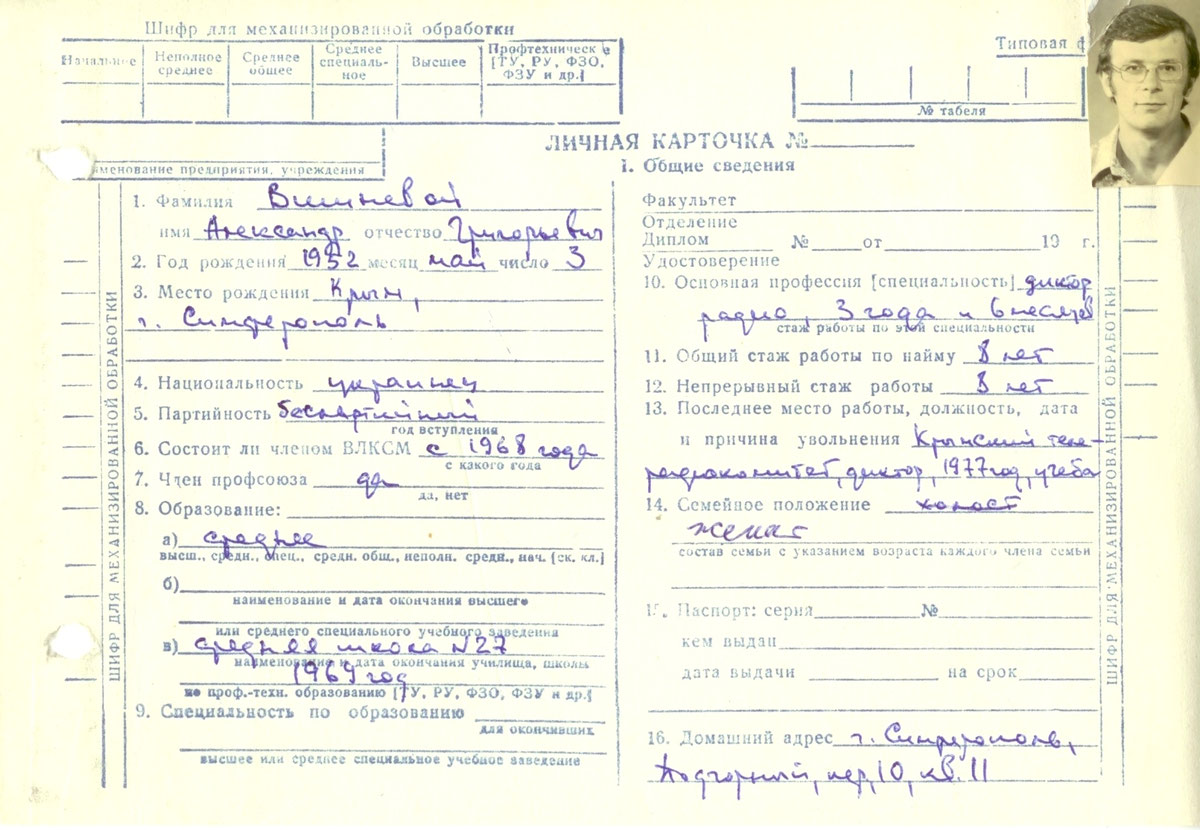 Шифр для механизированной обработки
Начальное
Неполное среднее
Среднее общее
Среднее специаль-ное
Высшее
Профтехническ е [ТУ, РУ, ФЗО, ФЗУ и др.]
Типовая ф
№ табеля
ЛИЧНАЯ КАРТОЧКА №
менование предприятия, учреждения
1. Общие сведения
ШИФР ДЛЯ МЕХАНИЗИРОВАННОЙ ОБРАБОТКИ
1. Фамилия Вишневой
имя Александр отчество Григорьевич
2. Год рождения 1952 месяц май число 3
3. Место рождения Крым,
г. Симферополь
4. Национальность украинец
5. Партийность беспартийный
год вступления
6. Состоит ли членом ВЛКСМ с 1968 года
с какого года
7. Член профсоюза да
да, нет
8. Образование:
а) среднее
высш., средн., спец., средн. общ., неполн. средн., нач. [ск. кл.]
б)
наименование и дата окончания высшего
или среднего специального учебного заведения
в) средняя школа N27
наименование и дата окончания училища, школы
1969 год
по проф.-техн. образованию [ТУ, РУ, ФЗО, ФЗУ и др.]
9. Специальность по образованию
для окончивших
высшее или среднее специальное учебное заведение
Факультет
Отделение
Диплом № от 19 г.
Удостоверение
10. Основная профессия [специальность] диктор
радио, 3 года и 6 месяцев
стаж работы по этой специальности
11. Общий стаж работы по найму 8 лет
12. Непрерывный стаж работы 8 лет
13. Последнее место работы, должность, дата
и причина увольнения Крымский теле-
радиокомитет, диктор, 1977 год, учеба
14. Семейное положение холост
женат
состав семьи с указанием возраста каждого члена семьи
Паспорт: серия №
кем выдан
дата выдачи на срок
16. Домашний адрес г. Симферополь,
Подгорный, пер, 10, кв. 11
ШИФР ДЛЯ МЕХАНИЗИРОВАННОЙ ОБРАБОТКИ